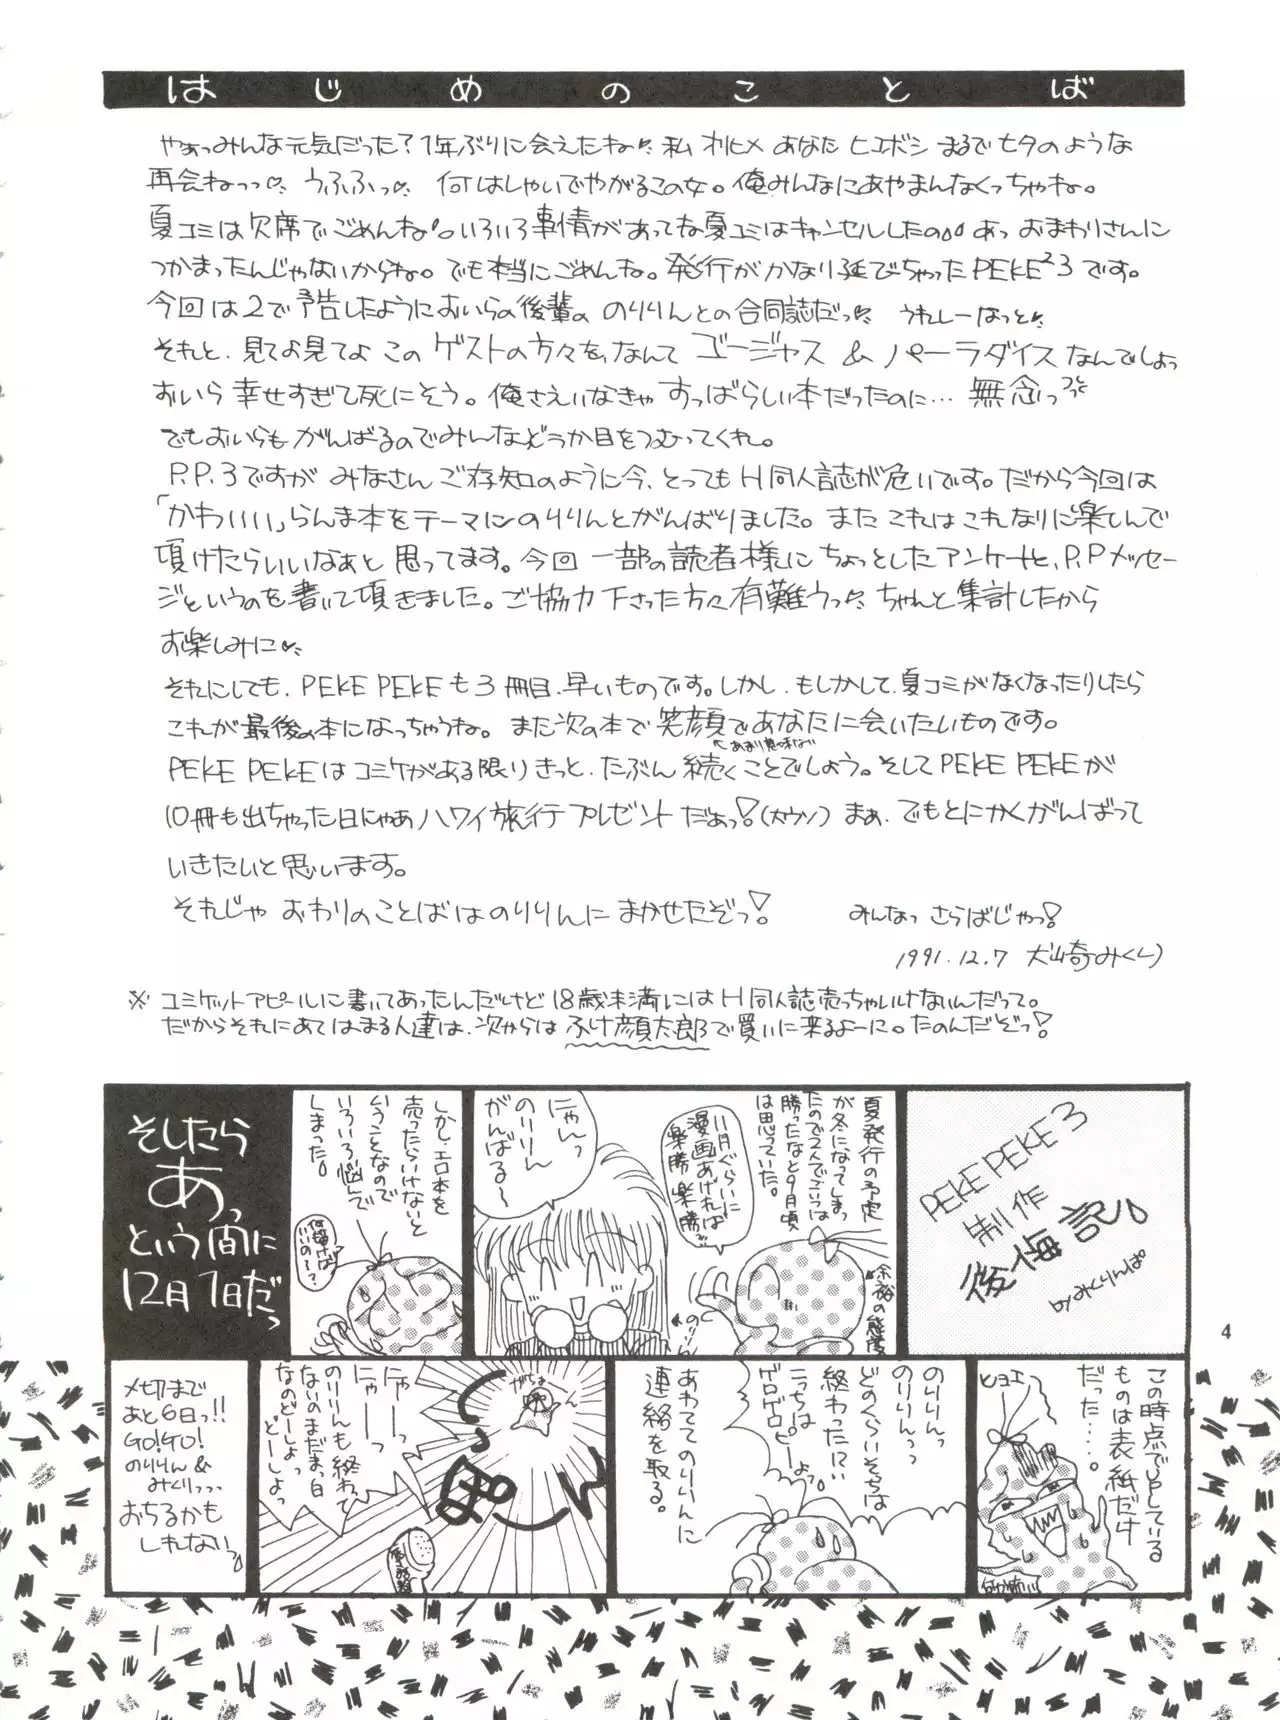 はじめのことば
やぁっみんな元気だった?1年ぶりに会えたね 私 オリヒメ あなた ヒコボシ まるで七夕のような
再会ねっっ うふふっ 何はしゃいでやがるこの女。俺みんなにあやまんなくっちゃね。
夏コミは欠席でごめんね。いろいろ事情があってな夏コミはキャンセルしたの あっ おまわりさんに
つかまったんじゃないからね。でも本当にごめんね。発行がかなり延びちゃったPEKE²3です。
今回は2で予告したようにおいらの後輩の のりりんとの合同誌だっ うれしーなっと
それと、見てお見てよ この ゲストの方々を、なんて ゴージャス & パーラダイス なんでしょっ
おいら 幸せすぎて死にそう。俺さえいなきゃ すっばらしい本だったのに… 無念っ
でもおいらも がんばるのでみんなどうか目をつむってくれ。
P.P.3ですが みなさん ご存知のように今、とってもH同人誌が危いです。だから今回は
「かわいい」らんま本をテーマにのりりんとがんばりました。また これはこれなりに楽しんで
頂けたらいいなぁと 思ってます。今回 一部の読者様に ちょっとしたアンケートと、P.Pメッセー
ジというのを 書いて頂きました。ご協力下さった方々有難うっ ちゃんと集計したから
お楽しみに
それにしても、PEKE PEKEも3冊目、早いものです。しかし、もしかして、夏コミがなくなったりしたら
これが最後の本になっちゃうね。また次の本で笑顔であなたに会いたいものです。
←あまり意味ない
PEKE PEKEはコミケがある限りきっと、たぶん 続くことでしょう。そしてPEKE PEKEが
10冊も出ちゃった日にゃあハワイ旅行プレゼント だぁっ!(大ウソ) まぁ、でもとにかくがんばって
いきたいと思います。
それじゃ おわりのことばはのりりんに まかせたぞっ! みんなっ さらばじゃっ!
1991.12.7 犬崎みくり
※ コミケットアピールに書いてあったんだけど18歳未満にはH同人誌売っちゃいけないんだって。
だからそれにあてはまる人達は、次からは ふけ顔太郎で買いに来るよーに。たのんだぞっ!
PEKE PEKE 3
制作
後悔記
by みくりんぱ
夏発行の予定
が冬になってしまっ
たので2人でごっつは
勝ったなと9月頃
は思っていた。
余裕の態度
11月ぐらいに
漫画あげれば
楽勝楽勝
にゃんっ
のりりん
がんばる〜
のりりん
しかし、エロ本を
売ったらいけないと
いうことなので
いろいろ悩んで
しまった。
何描けば
いいの〜?
そしたら
あっ
という間に
12月1日だっ
この時点でUPしている
ものは表紙だけ
だった…。
ヒョエ
のりりんっ
のりりんっ
どのくらいそちは
終わったにい
こっちは
ゲロゲロピーよっ
あわててのりりんに
連絡を取る。
にゃーっ
にゃーっ
のりりんも終わって
ないのまだまっ白
なのどーしよっ
どーしよっ
〆切まで
あと6日っ!!
GO!GO!
のりりん&
みくりっっ
おちるかも
しれないっ
4